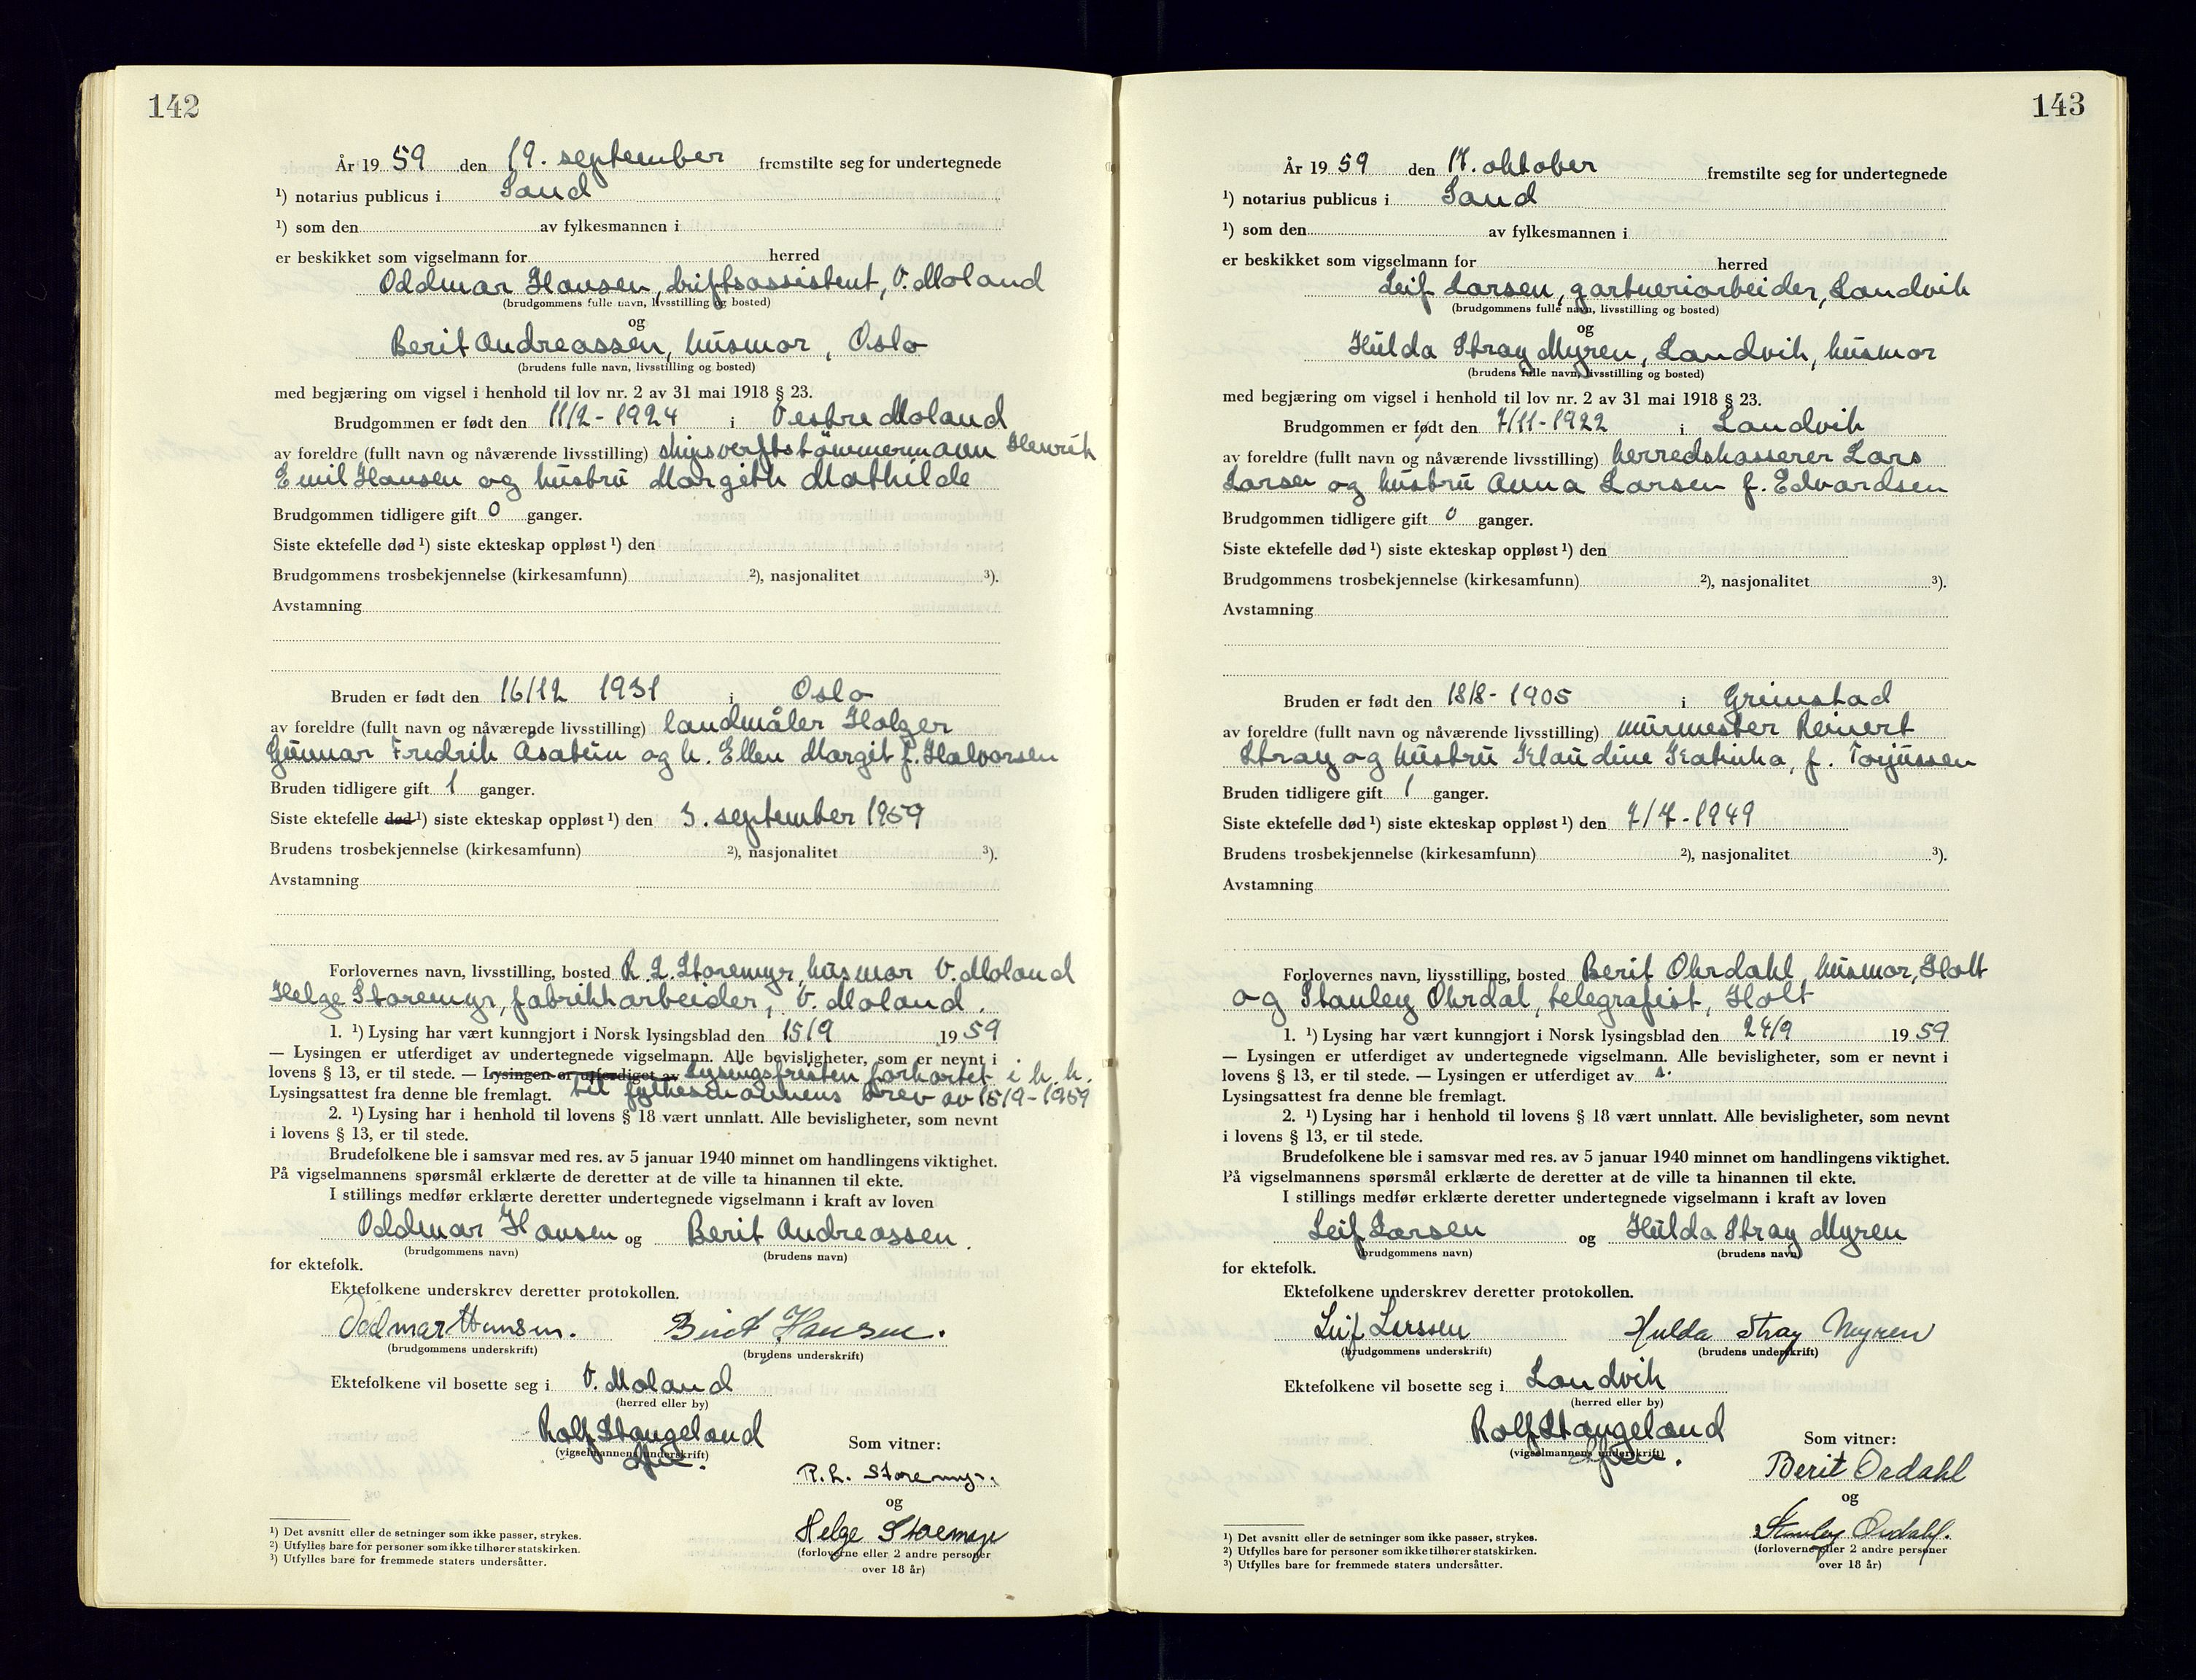 142
År 19 59 den 19. september fremstilte seg for undertegnede
¹) notarius publicus i Sand
¹) som den av fylkesmannen i
er beskikket som vigselmann for herred
Oddmar Hansen, driftsassistent, V. Moland
(brudgommens fulle navn, livsstilling og bosted)
og
Berit Andreassen, husmor, Oslo
(brudens fulle navn, livsstilling og bosted)
med begjæring om vigsel i henhold til lov nr. 2 av 31 mai 1918 § 23.
Brudgommen er født den 11/2 - 1924 i Vestre Moland
av foreldre (fullt navn og nåværende livsstilling) skipsverftstømmermann Henrik
Emil Hansen og hustru Margith Mathilde
Brudgommen tidligere gift 0 ganger.
Siste ektefelle død ¹) siste ekteskap oppløst ¹) den
Brudgommens trosbekjennelse (kirkesamfunn) ²), nasjonalitet ³).
Avstamning
Bruden er født den 16/12 1931 i Oslo
av foreldre (fullt navn og nåværende livsstilling) landmåler Holger
Gunnar Fredrik Asatun og h. Ellen Margit f. Halvorsen
Bruden tidligere gift 1 ganger.
Siste ektefelle død ¹) siste ekteskap oppløst ¹) den 3. september 1959
Brudens trosbekjennelse (kirkesamfunn) ²), nasjonalitet ³).
Avstamning
Forlovernes navn, livsstilling, bosted R. L. Storemyr, husmor V. Moland
Helge Storemyr, fabrikkarbeider, V. Moland.
1. ¹) Lysing har vært kunngjort i Norsk lysingsblad den 15/9 19 59
— Lysingen er utferdiget av undertegnede vigselmann. Alle bevisligheter, som er nevnt i
lovens § 13, er til stede. — Lysingen er utferdiget av Lysingsfristen forkortet i h. h.
Lysingsattest fra denne ble fremlagt. til fylkesmannens brev av 15/9-1959
2. ¹) Lysing har i henhold til lovens § 18 vært unnlatt. Alle bevisligheter, som nevnt
i lovens § 13, er til stede.
Brudefolkene ble i samsvar med res. av 5 januar 1940 minnet om handlingens viktighet.
På vigselmannens spørsmål erklærte de deretter at de ville ta hinannen til ekte.
I stillings medfør erklærte deretter undertegnede vigselmann i kraft av loven
Oddmar Hansen og Berit Andreassen.
(brudgommens navn) (brudens navn)
for ektefolk.
Ektefolkene underskrev deretter protokollen.
Oddmar Hansen. Berit Hansen.
(brudgommens underskrift) (brudens underskrift)
Ektefolkene vil bosette seg i V. Moland
(herred eller by)
Rolf Stangeland
(vigselmannens underskrift)
Som vitner:
R. L. Storemyr.
og
Helge Storemyr
(forloverne eller 2 andre personer
over 18 år)
¹) Det avsnitt eller de setninger som ikke passer, strykes.
²) Utfylles bare for personer som ikke tilhører statskirken.
³) Utfylles bare for fremmede staters undersåtter.
143
År 19 59 den 17. oktober fremstilte seg for undertegnede
¹) notarius publicus i Sand
¹) som den av fylkesmannen i
er beskikket som vigselmann for herred
Leif Larsen, gartneriarbeider, Landvik
(brudgommens fulle navn, livsstilling og bosted)
og
Hulda Stray Myren, Landvik, husmor
(brudens fulle navn, livsstilling og bosted)
med begjæring om vigsel i henhold til lov nr. 2 av 31 mai 1918 § 23.
Brudgommen er født den 7/11-1922 i Landvik
av foreldre (fullt navn og nåværende livsstilling) herredskasserer Lars
Larsen og hustru Anna Larsen f. Edvardsen
Brudgommen tidligere gift 0 ganger.
Siste ektefelle død ¹) siste ekteskap oppløst ¹) den
Brudgommens trosbekjennelse (kirkesamfunn) ²), nasjonalitet ³).
Avstamning
Bruden er født den 18/8 - 1905 i Grimstad
av foreldre (fullt navn og nåværende livsstilling) murmester Reinert
Stray og hustru Klaudine Katinka, f. Torjussen
Bruden tidligere gift 1 ganger.
Siste ektefelle død ¹) siste ekteskap oppløst ¹) den 7/7-1949
Brudens trosbekjennelse (kirkesamfunn) ²), nasjonalitet ³).
Avstamning
Forlovernes navn, livsstilling, bosted Berit Ohrdahl, husmor, Holt
og Stanley Ohrdal, telegrafist, Holt
1. ¹) Lysing har vært kunngjort i Norsk lysingsblad den 24/9 19 59
— Lysingen er utferdiget av undertegnede vigselmann. Alle bevisligheter, som er nevnt i
lovens § 13, er til stede. — Lysingen er utferdiget av
Lysingsattest fra denne ble fremlagt.
2. ¹) Lysing har i henhold til lovens § 18 vært unnlatt. Alle bevisligheter, som nevnt
i lovens § 13, er til stede.
Brudefolkene ble i samsvar med res. av 5 januar 1940 minnet om handlingens viktighet.
På vigselmannens spørsmål erklærte de deretter at de ville ta hinannen til ekte.
I stillings medfør erklærte deretter undertegnede vigselmann i kraft av loven
Leif Larsen og Hulda Stray Myren
(brudgommens navn) (brudens navn)
for ektefolk.
Ektefolkene underskrev deretter protokollen.
Leif Larssen Hulda Stray Myren
(brudgommens underskrift) (brudens underskrift)
Ektefolkene vil bosette seg i Landvik
(herred eller by)
Rolf Stangeland
(vigselmannens underskrift)
Som vitner:
Berit Ordahl
og
Stanley Ordahl.
(forloverne eller 2 andre personer
over 18 år)
¹) Det avsnitt eller de setninger som ikke passer, strykes.
²) Utfylles bare for personer som ikke tilhører statskirken.
³) Utfylles bare for fremmede staters undersåtter.